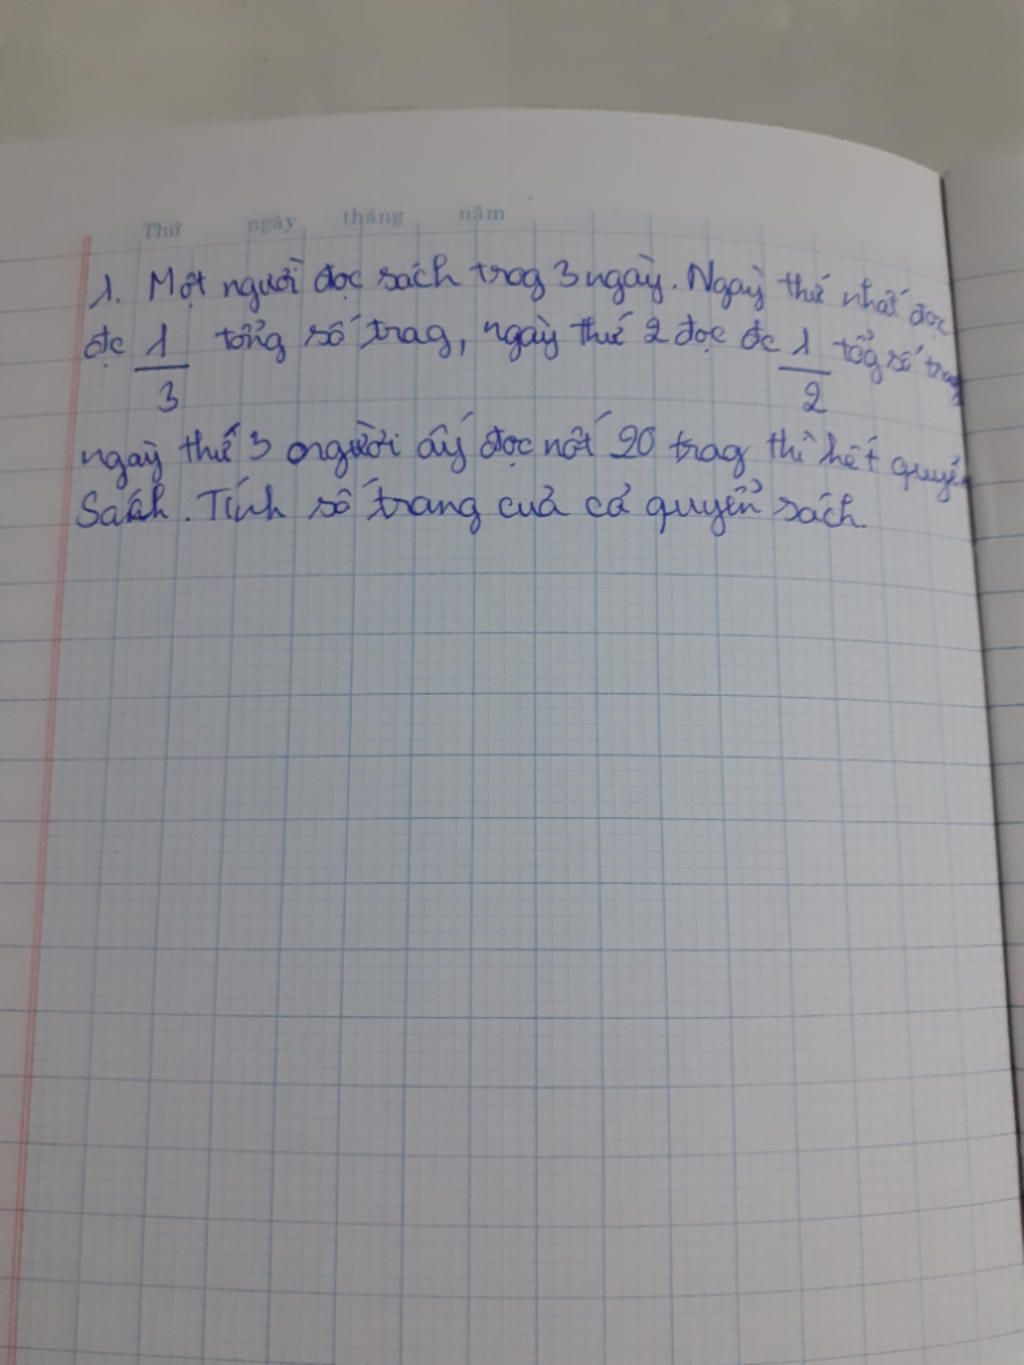 Thứ ngày tháng năm
1. Một người đọc sách trog 3 ngày. Ngày thứ nhất đọc
đc 1/3 tổng số trag, ngày thứ 2 đọc đc 1/2 tổg số trag
ngày thứ 3 người ấy đọc nốt 20 trag thì hết quyển
Saách. Tính số trang cuả cả quyển sách.